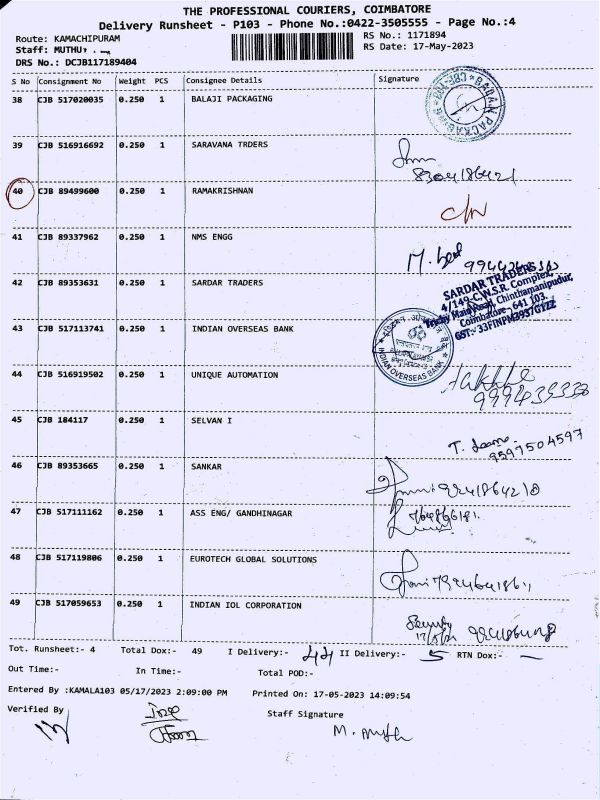 THE PROFESSIONAL COURIERS, COIMBATORE
Delivery Runsheet - P103 - Phone No.:0422-3505555 - Page No.:4
Route: KAMACHIPURAM
RS No.: 1171894
Staff: MUTHU
RS Date: 17-May-2023
DRS No.: DCJB117189404
S No Consignment No Weight PCS Consignee Details Signature
38 CJB 517020035 0.250 1 BALAJI PACKAGING
39 CJB 516916692 0.250 1 SARAVANA TRDERS
40 CJB 89499600 0.250 1 RAMAKRISHNAN
41 CJB 89337962 0.250 1 NMS ENGG
42 CJB 89353631 0.250 1 SARDAR TRADERS
SARDAR TRADERS
4/149-C, W.S.R. Complex,
Trichy Main Road, Chinthamanipudur,
Coimbatore - 641 103.
43 CJB 517113741 0.250 1 INDIAN OVERSEAS BANK
INDIAN OVERSEAS BANK
44 CJB 516919502 0.250 1 UNIQUE AUTOMATION
45 CJB 184117 0.250 1 SELVAN I
9597504597
46 CJB 89353665 0.250 1 SANKAR
47 CJB 517111162 0.250 1 ASS ENG/ GANDHINAGAR
48 CJB 517119806 0.250 1 EUROTECH GLOBAL SOLUTIONS
49 CJB 517059653 0.250 1 INDIAN IOL CORPORATION
Security
Tot. Runsheet:- 4 Total Dox:- 49 I Delivery:- 44 II Delivery:- 5 RTN Dox:- —
Out Time:- In Time:- Total POD:-
Entered By :KAMALA103 05/17/2023 2:09:00 PM Printed On: 17-05-2023 14:09:54
Verified By Staff Signature